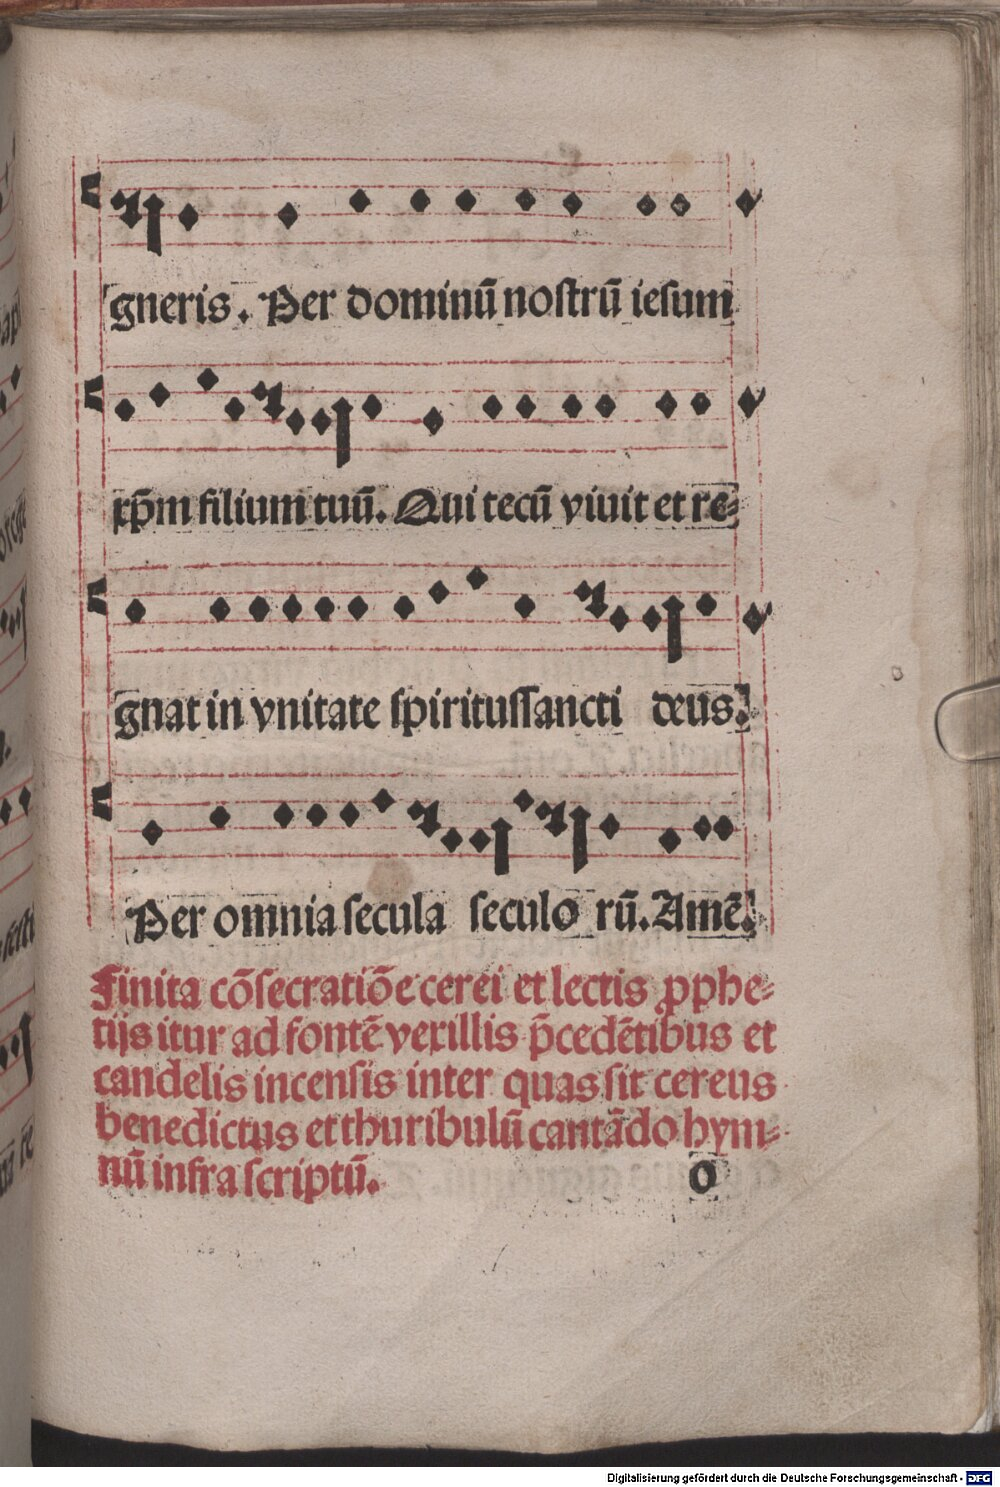 gneris. Per dominū nostrū iesum
xp̄m filium tuū. Qui tecū viuit et re-
gnat in vnitate spiritussancti deus.
Per omnia secula seculo rū. Amē.
Finita cōsecratiōe cerei et lectis ꝓphe-
tijs itur ad fontē vexillis p̄cedētibus et
candelis incensis inter quas sit cereus
benedictus et thuribulū cantādo hym-
nū infra scriptū.
o
Digitalisierung gefördert durch die Deutsche Forschungsgemeinschaft - DFG